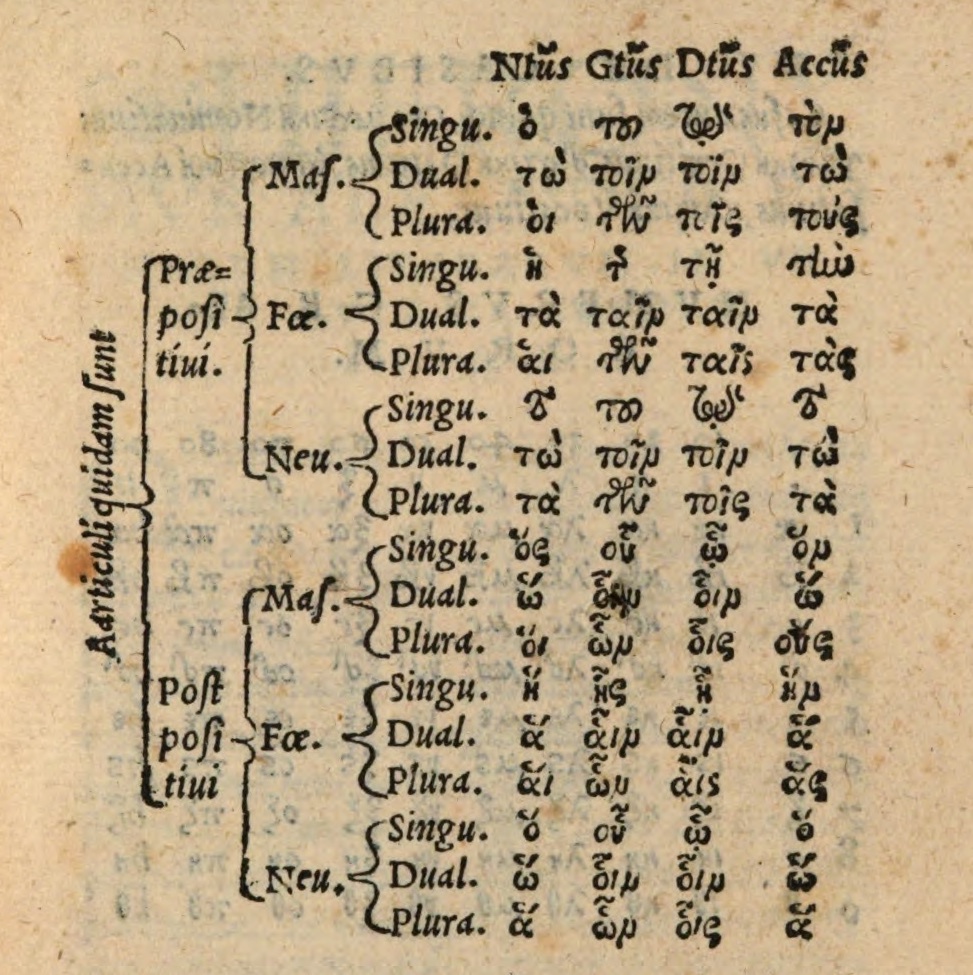 Ntũs Gtũs Dtũs Accũs
Aarticuli quidam ſunt
Singu. ὁ του τῷ τὸν
Maſ. Dual. τὼ τοῖν τοῖν τὼ
Plura. ὁι τῶν τοῖς τοὺς
Præ= Singu. ἡ τῆς τῇ τὴν
poſi Fœ. Dual. τὰ ταῖν ταῖν τὰ
tiui. Plura. ἁι τῶν ταῖς τὰς
Singu. τὸ του τῷ τὸ
Neu. Dual. τὼ τοῖν τοῖν τὼ
Plura. τὰ τῶν τοῖς τὰ
Singu. ὅς οὗ ᾧ ὅν
Maſ. Dual. ὥ οἷν ὥ
Plura. ὅι ὧν οἷς οὕς
Poſt Singu. ἥ ἧς ᾗ ἥν
poſi Fœ. Dual. ἅ ἇιν ἇιν ἅ
tiui Plura. ἅι ὧν ἇις ἅς
Singu. ὅ οὗ ᾧ ὅ
Neu. Dual. ὥ οἷν οἷν ὥ
Plura. ἅ ὧν οἷς ἅ